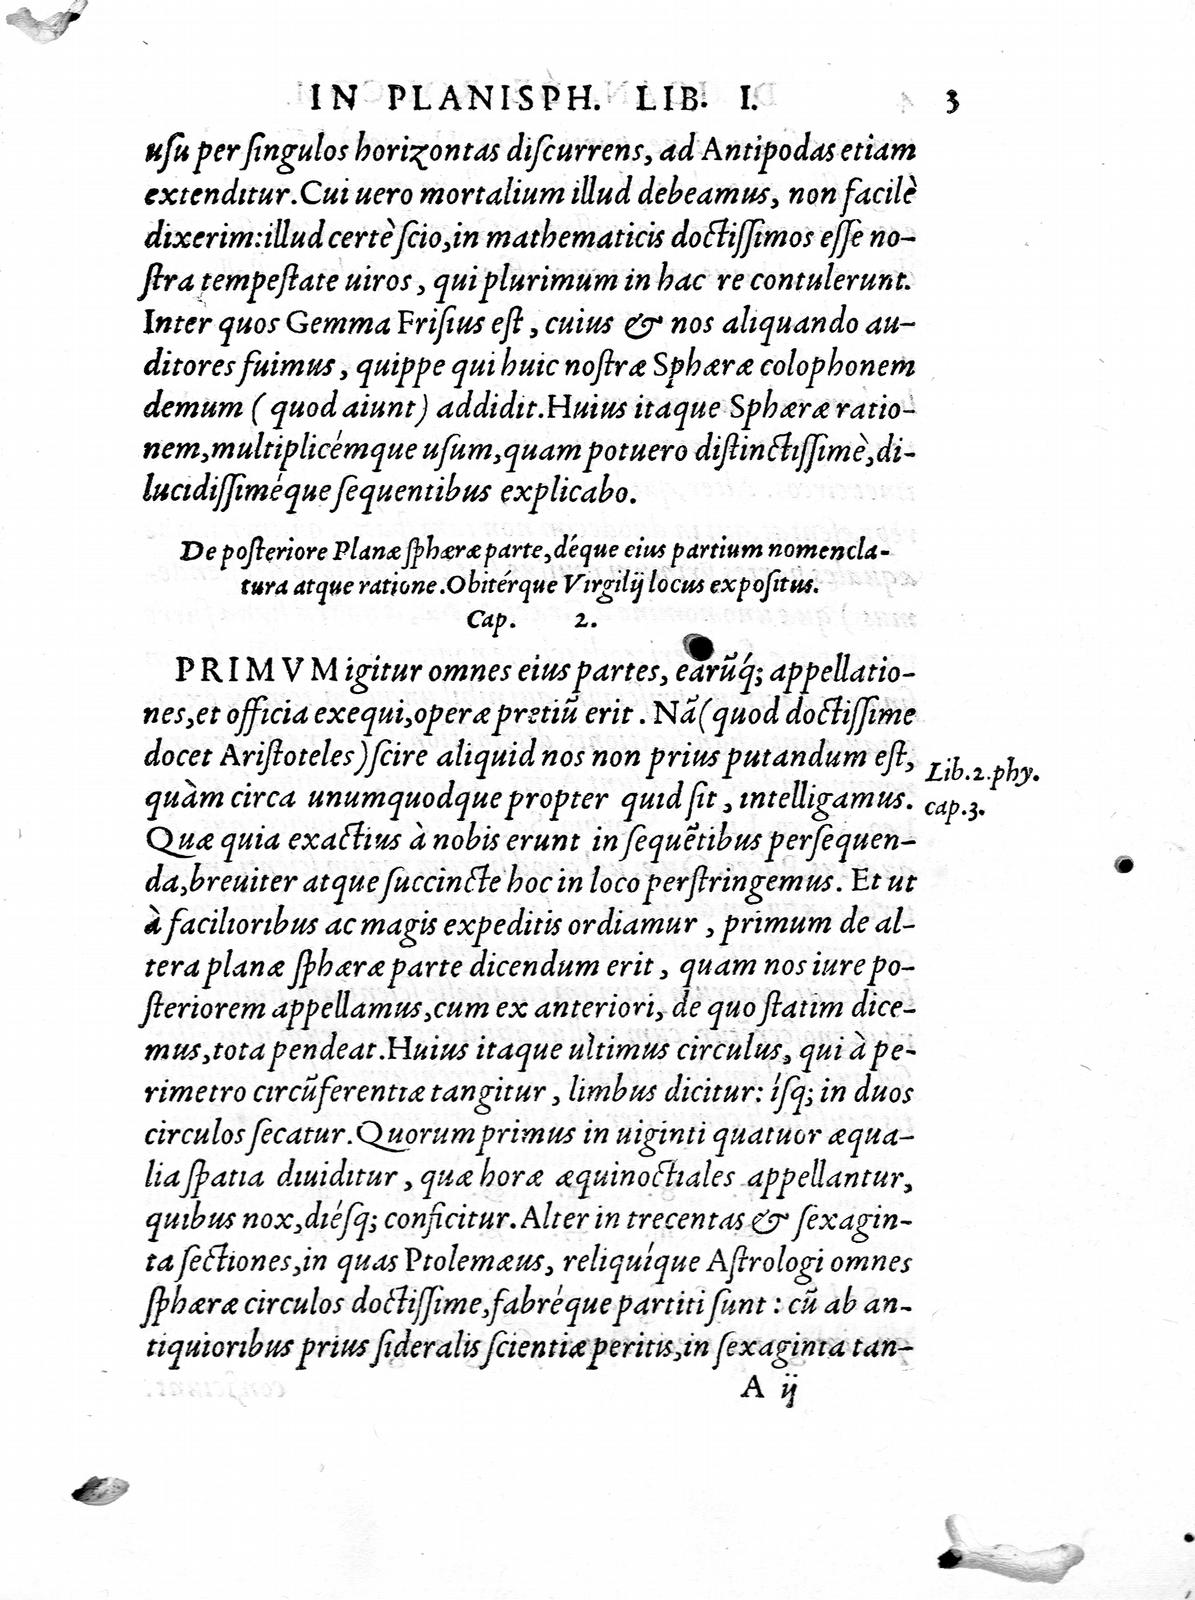 IN PLANISPH. LIB. I. 3
uſu per ſingulos horizontas diſcurrens, ad Antipodas etiam
extenditur. Cui uero mortalium illud debeamus, non facilè
dixerim: illud certè ſcio, in mathematicis doctiſſimos eſſe no-
ſtra tempeſtate uiros, qui plurimum in hac re contulerunt.
Inter quos Gemma Friſius eſt, cuius & nos aliquando au-
ditores fuimus, quippe qui huic noſtræ Sphæræ colophonem
demum (quod aiunt) addidit. Huius itaque Sphæræ ratio-
nem, multiplicémque uſum, quam potuero diſtinctiſſimè, di-
lucidiſſiméque ſequentibus explicabo.
De poſteriore Planæ ſphæræ parte, déque eius partium nomencla-
tura atque ratione. Obitérque Virgilij locus expoſitus.
Cap. 2.
PRIMVM igitur omnes eius partes, earũq́; appellatio-
nes, et officia exequi, operæ pretiũ erit. Nã (quod doctiſſime
docet Ariſtoteles) ſcire aliquid nos non prius putandum eſt,
Lib. 2. phy.
quàm circa unumquodque propter quid ſit, intelligamus.
cap. 3.
Quæ quia exactius à nobis erunt in ſequẽtibus perſequen-
da, breuiter atque ſuccincte hoc in loco perſtringemus. Et ut
à facilioribus ac magis expeditis ordiamur, primum de al-
tera planæ ſphæræ parte dicendum erit, quam nos iure po-
ſteriorem appellamus, cum ex anteriori, de quo ſtatim dice-
mus, tota pendeat. Huius itaque ultimus circulus, qui à pe-
rimetro circũferentiæ tangitur, limbus dicitur: íſq; in duos
circulos ſecatur. Quorum primus in uiginti quatuor æqua-
lia ſpatia diuiditur, quæ horæ æquinoctiales appellantur,
quibus nox, diéſq; conficitur. Alter in trecentas & ſexagin-
ta ſectiones, in quas Ptolemæus, reliquíque Aſtrologi omnes
ſphæræ circulos doctiſſime, fabréque partiti ſunt: cũ ab an-
tiquioribus prius ſideralis ſcientiæ peritis, in ſexaginta tan-
A ij